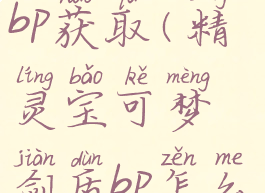 bp获取(精
líng bǎo kě mèng
灵宝可梦
jiàn dùn zěn me
剑盾bp怎么